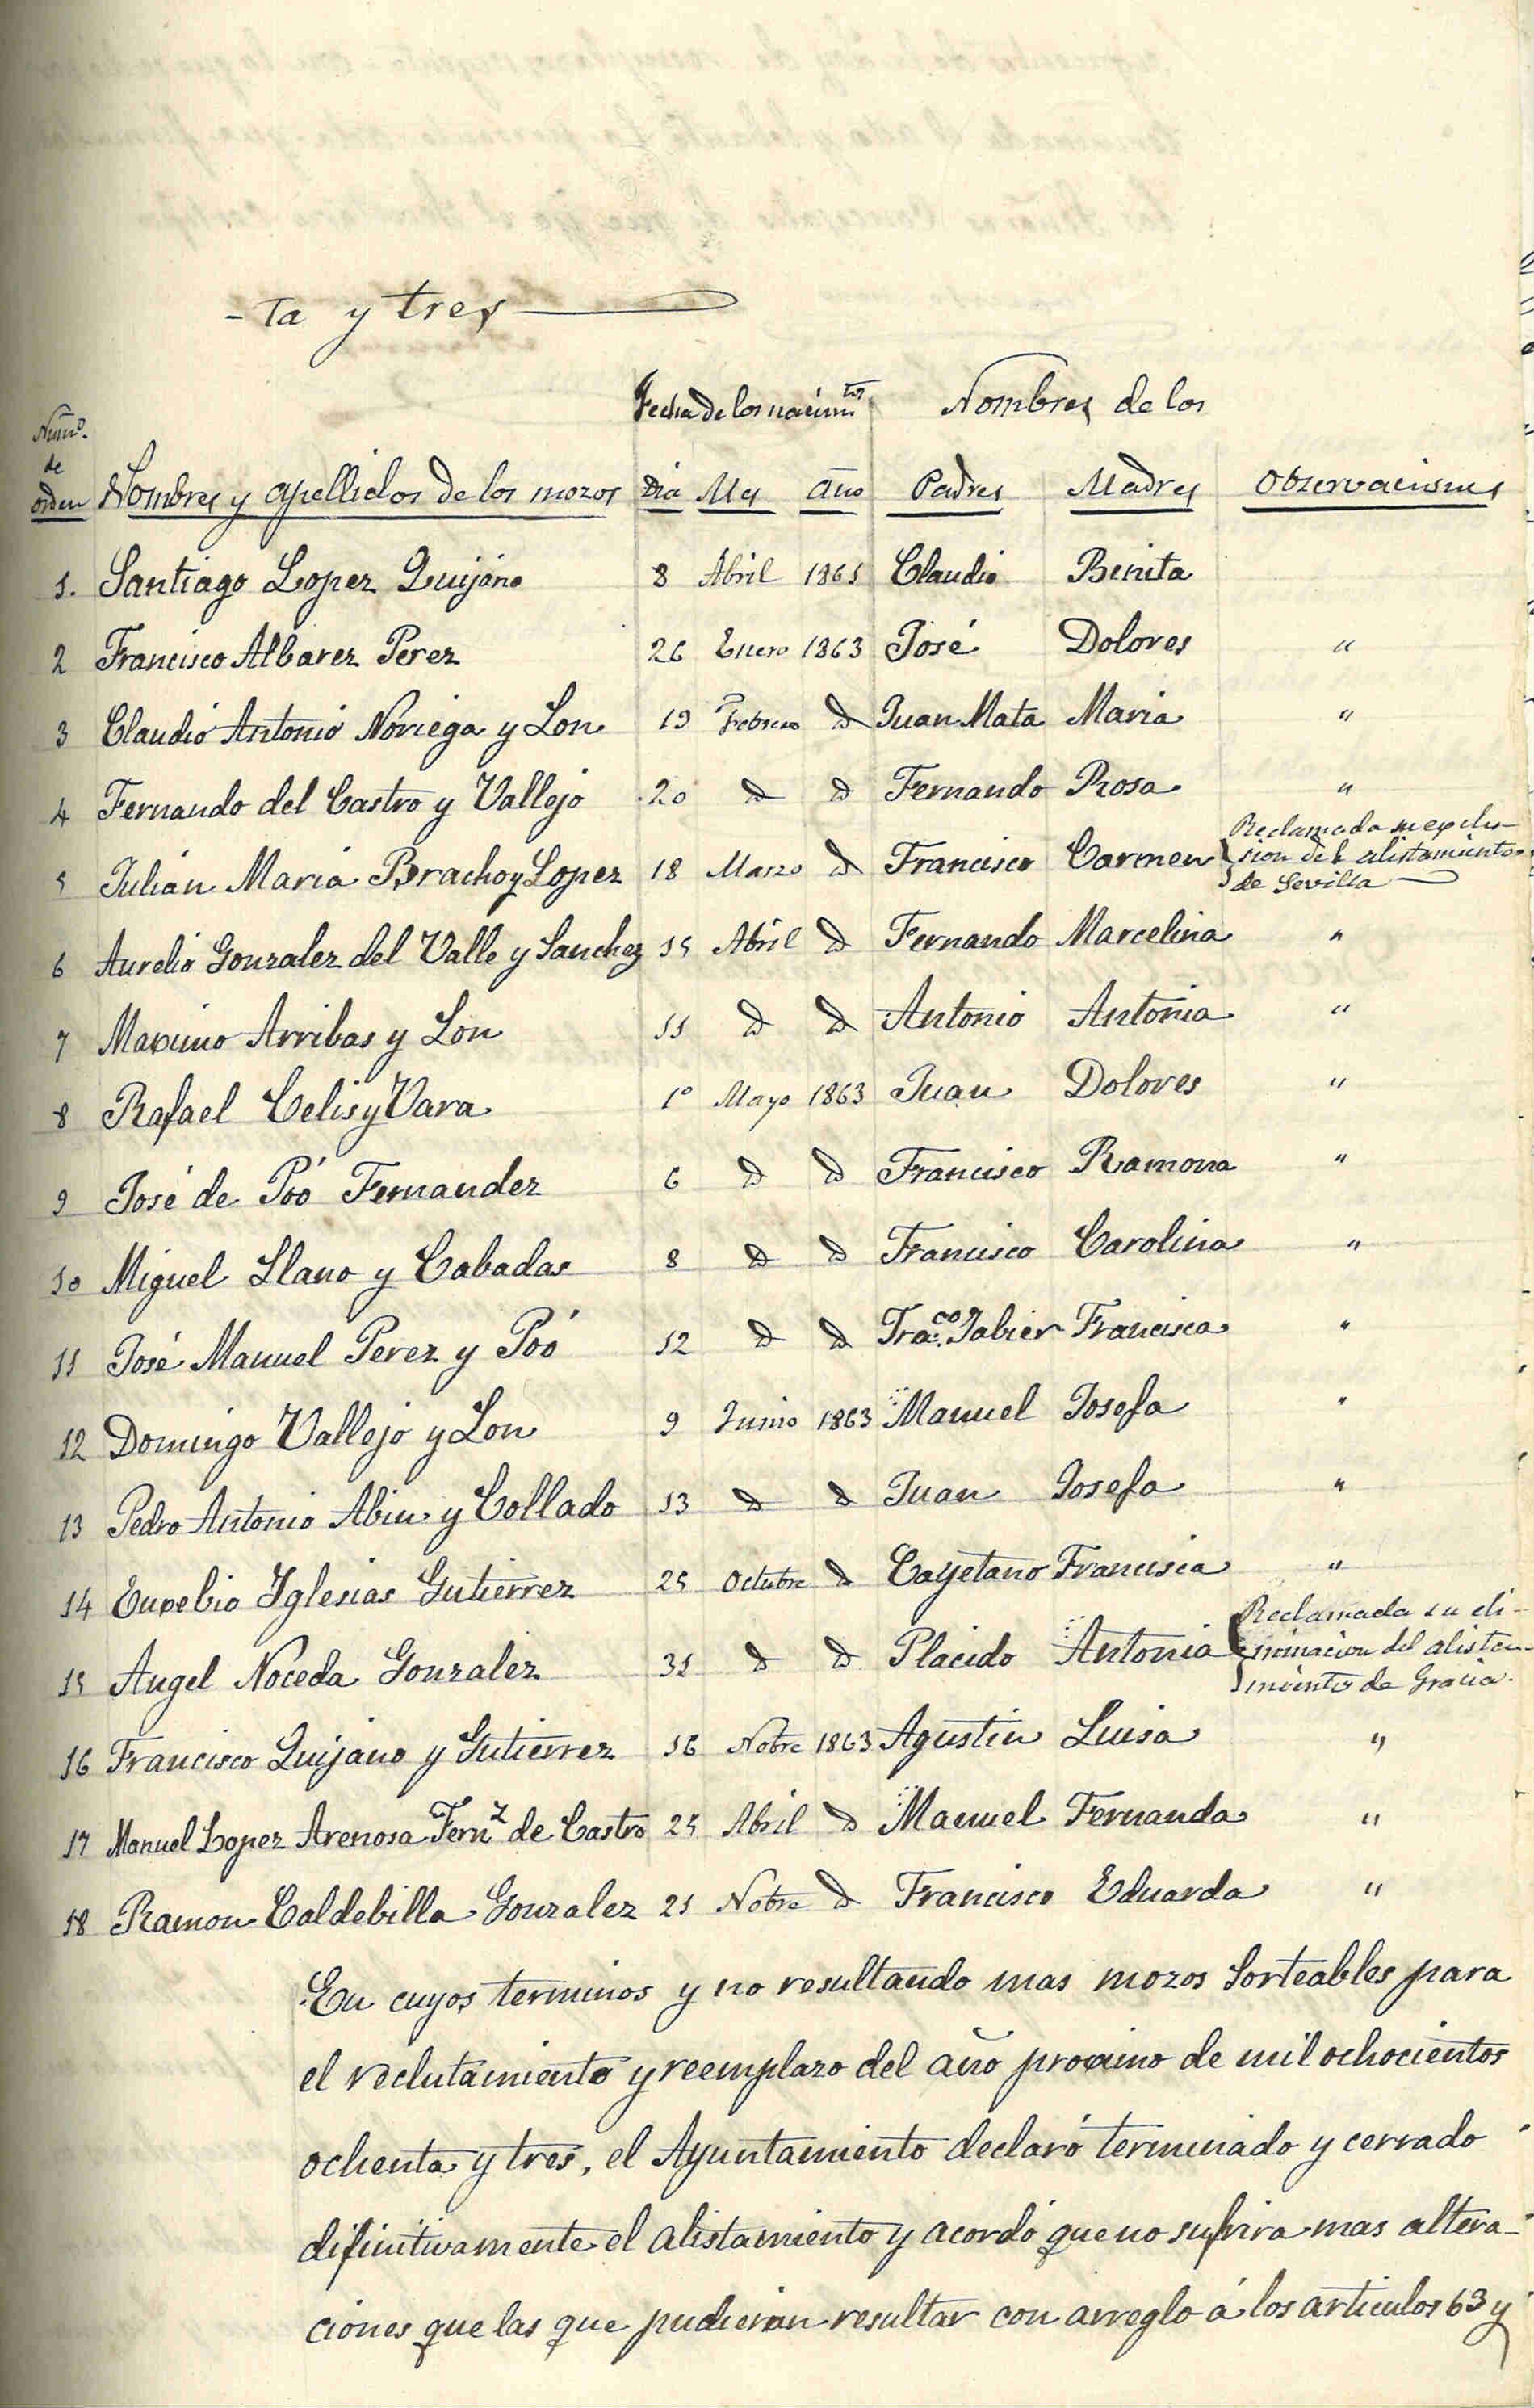 -ta y tres
Fecha de los nacim.tos Nombres de los
Núm.o
de
orden Nombres y apellidos de los mozos Dia Mes Año Padres Madres Observaciones
1. Santiago Lopez Quijano 8 Abril 1861 Claudio Benita
2 Francisco Albarez Perez 26 Enero 1863 José Dolores "
3 Claudio Antonio Noriega y Lon 19 Febrero d Juan Mata Maria "
4 Fernando del Castro y Vallejo 20 d d Fernando Rosa "
5 Julian Maria Bracho y Lopez 18 Marzo d Francisco Carmen Reclamada su exclu-
sion del alistamiento
de Sevilla
6 Aurelio Gonzalez del Valle y Sanchez 15 Abril d Fernando Marcelina "
7 Maximo Arribas y Lon 11 d d Antonio Antonia "
8 Rafael Celis y Vara 1º Mayo 1863 Juan Dolores "
9 José de Póo Fernandez 6 d d Francisco Ramona "
10 Miguel Llano y Cabadas 8 d d Francisco Carolina "
11 José Manuel Perez y Póo 12 d d Fra.co Jabier Francisca "
12 Domingo Vallejo y Lon 9 Junio 1863 Manuel Josefa "
13 Pedro Antonio Abin y Collado 13 d d Juan Josefa "
14 Eusebio Yglesias Gutierrez 25 Octubre d Cayetano Francisca "
15 Angel Noceda Gonzalez 31 d d Placido Antonia Reclamada su eli-
minacion del alista-
miento de Gracia.
16 Francisco Quijano y Gutierrez 16 Nobre 1863 Agustin Luisa "
17 Manuel Lopez Arenosa Fernz de Castro 25 Abril d Manuel Fernanda "
18 Ramon Caldebilla Gonzalez 21 Nobre d Francisco Eduarda "
En cuyos terminos y no resultando mas mozos sorteables para
el reclutamiento y reemplazo del año proximo de mil ochocientos
ochenta y tres, el Ayuntamiento declaró terminado y cerrado
difinitivamente el alistamiento y acordó que no sufrira mas altera-
ciones que las que pudieran resultar con arreglo á los articulos 63 y